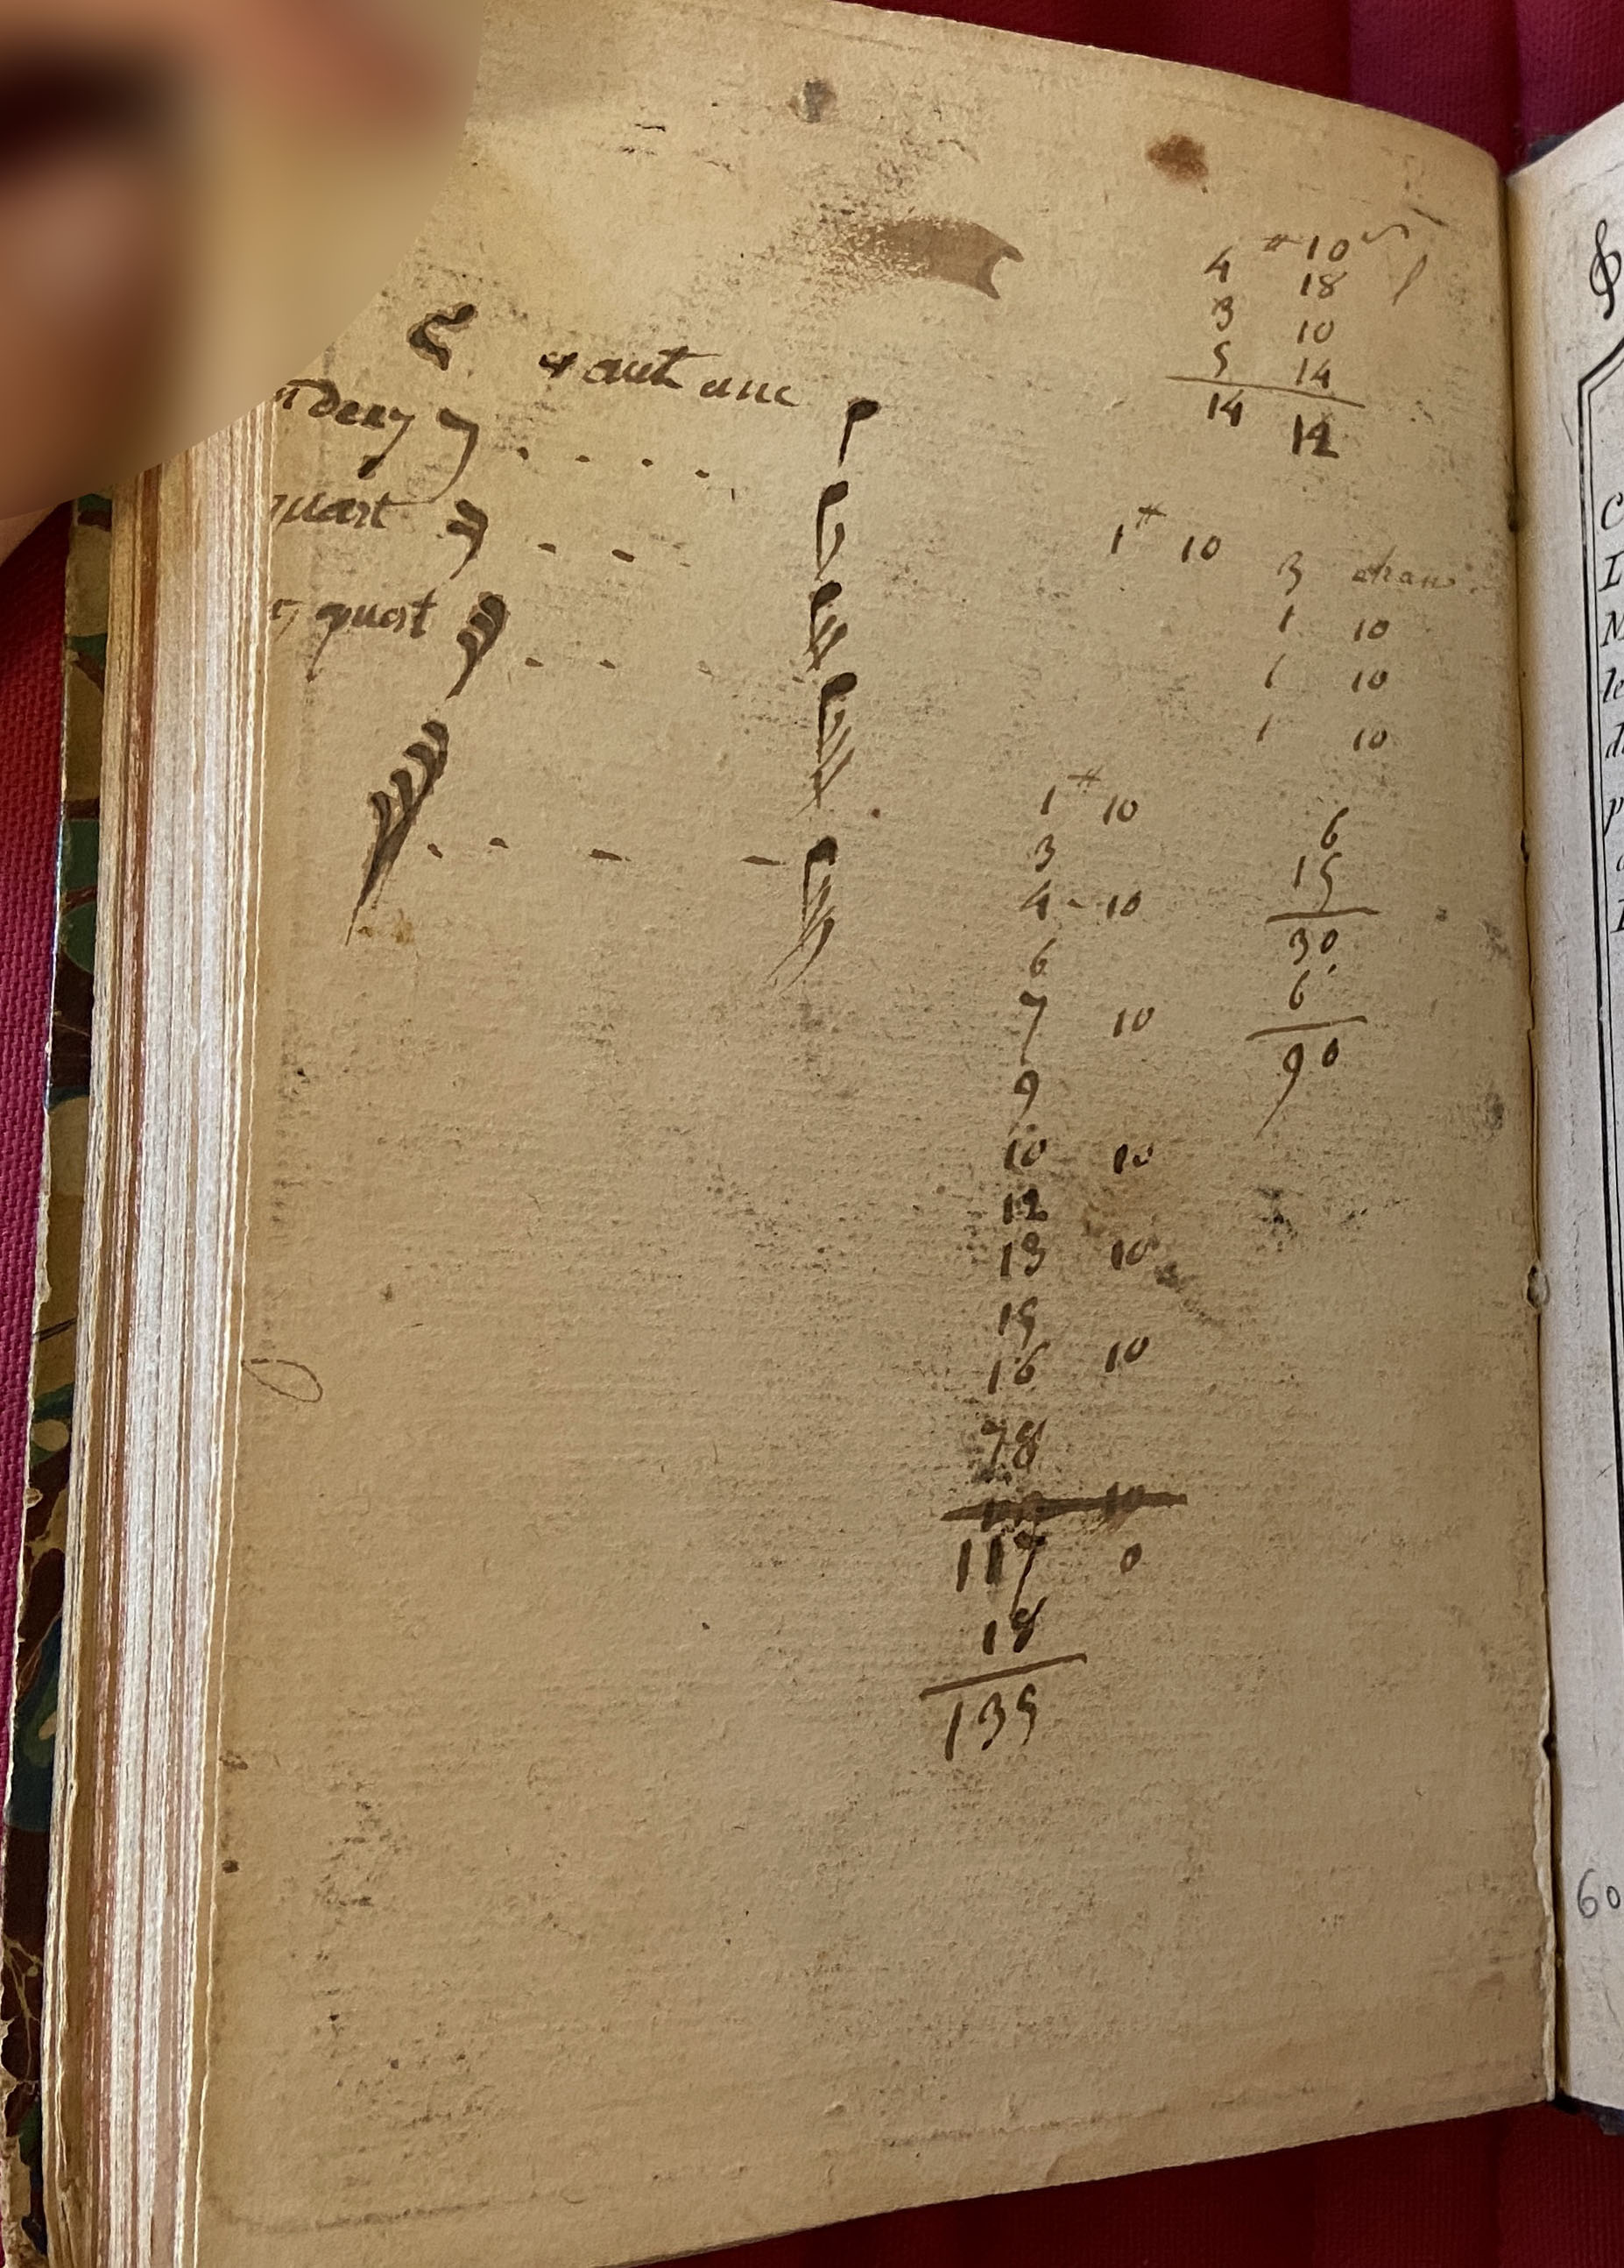 vaut une
quart
quart
4 # 10
3 18
5 10
14
14 12
1# 10
3
1 10
1 10
1 10
1# 10
3
4 - 10
6
7 10
9
10 10
12
13 10
15
16 10
78
117 0
18
135
6
15
30
6
90
C
I
M
le
d
p
60